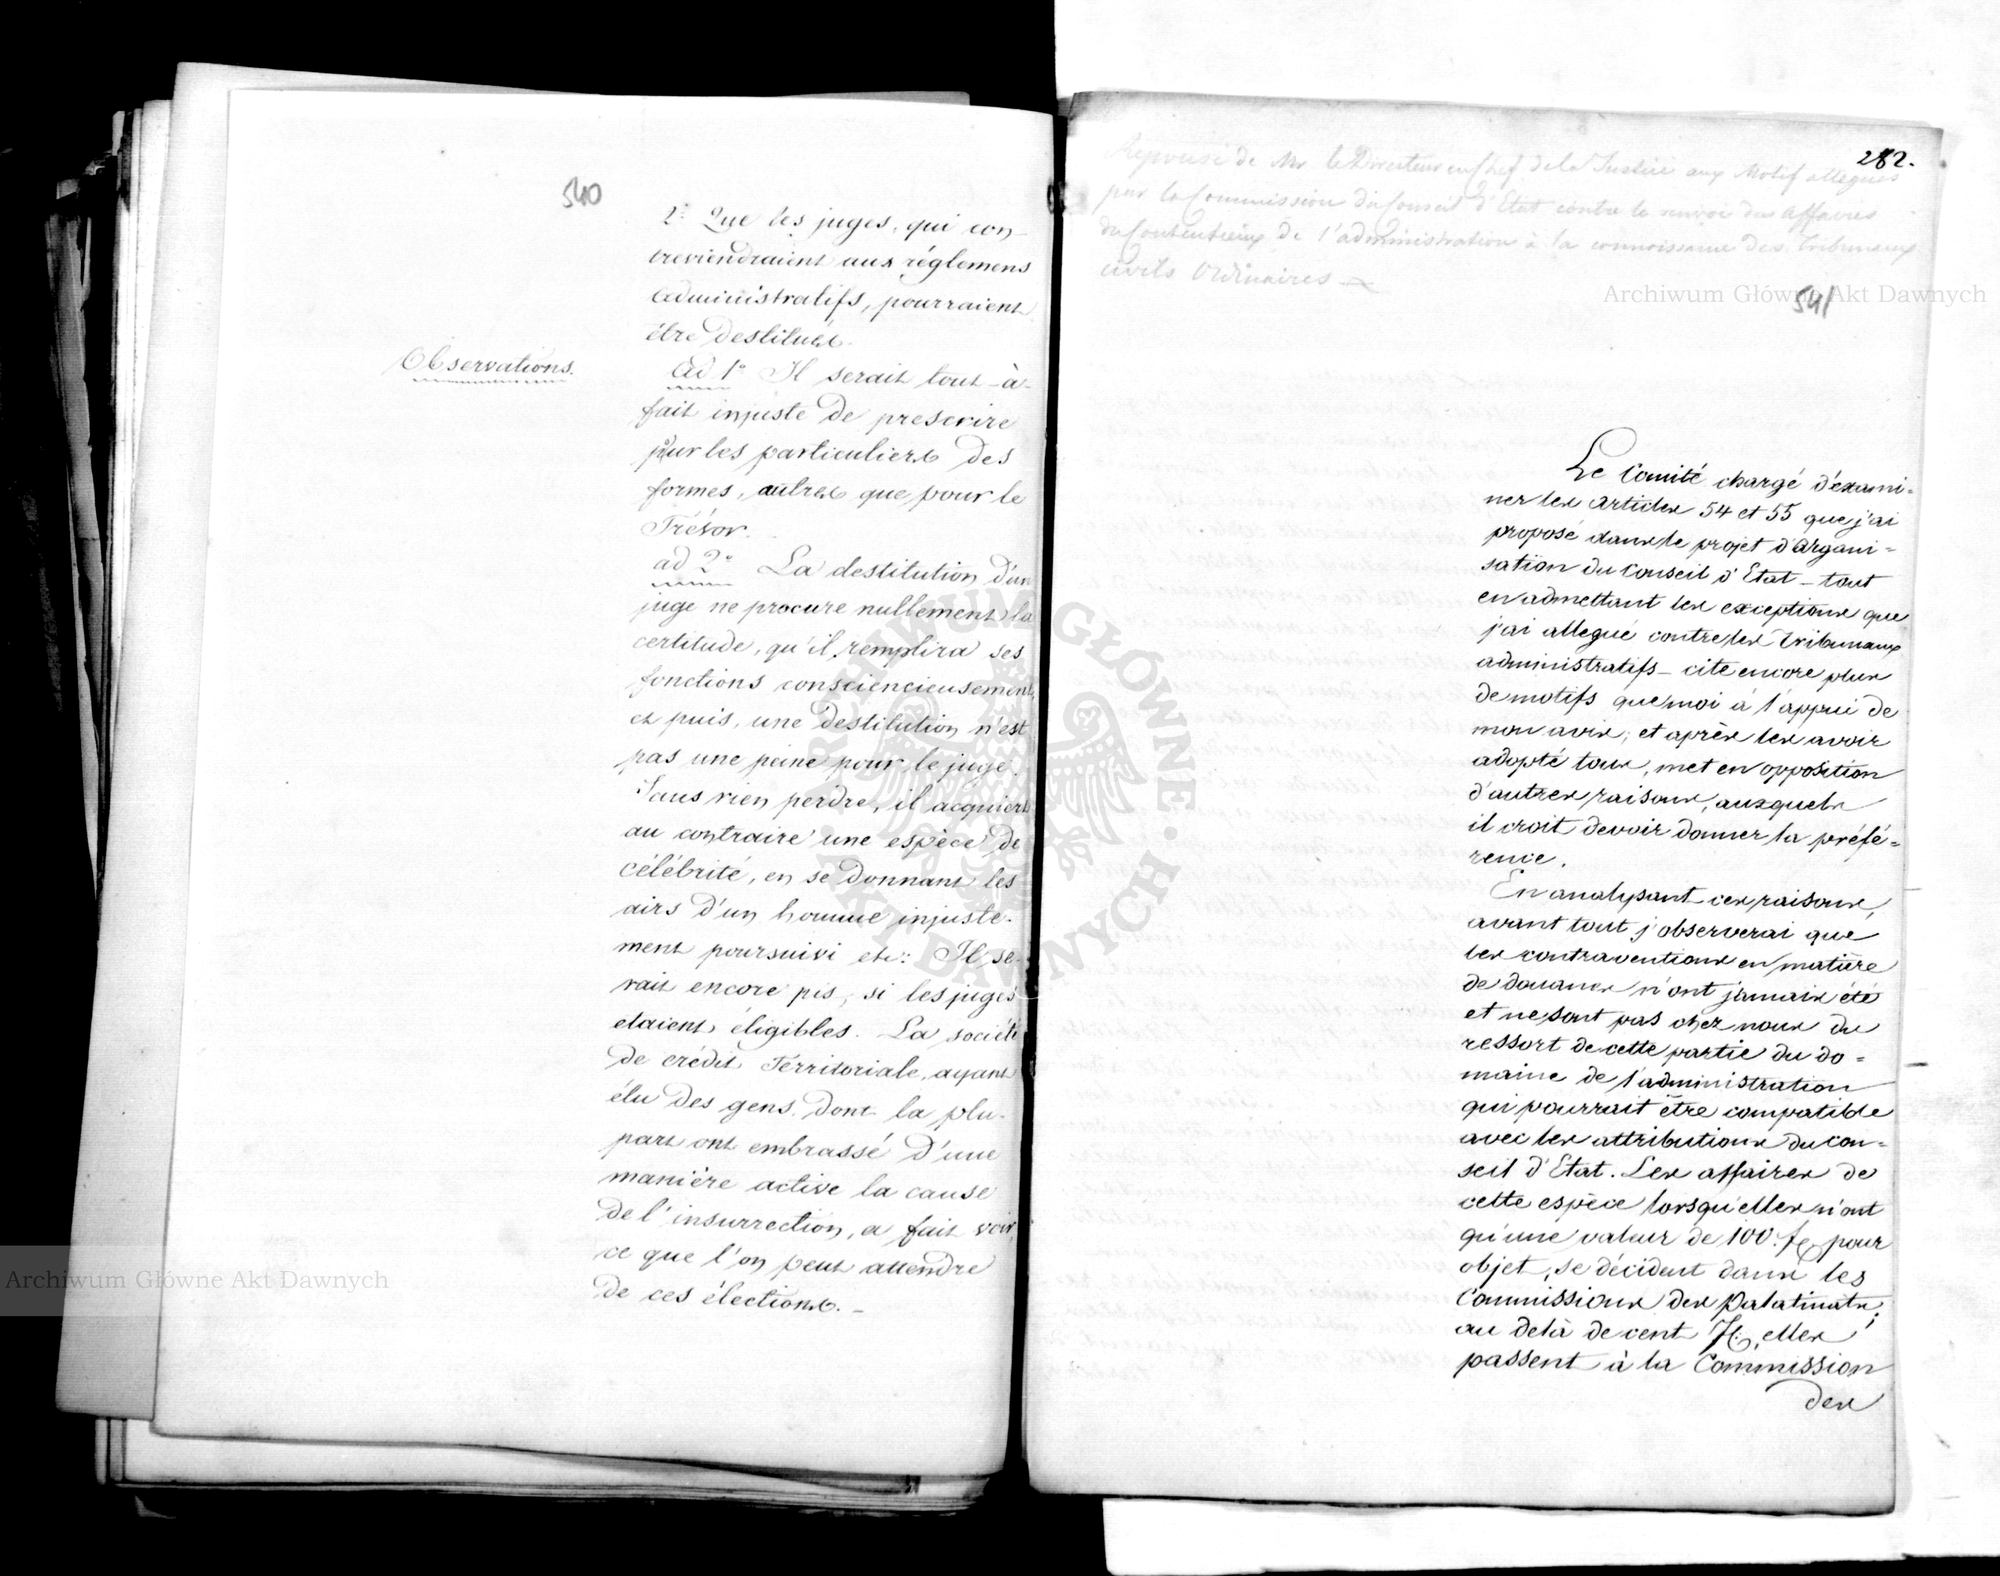 540
2° Que les juges, qui con-
treviendraient aux réglemens
administratifs, pourraient
être destitués.
Observations.
ad 1° Il serait tout-à-
fait injuste de prescrire
pour les particuliers des
formes, autres que pour le
Trésor.
ad 2° La destitution d'un
juge ne procure nullement la
certitude, qu'il remplira ses
fonctions consciencieusement,
et puis, une destitution n'est
pas une peine pour le juge.
Sans rien perdre, il acquiert
au contraire une espèce de
célébrité, en se donnant les
airs d'un homme injuste-
ment poursuivi etc: Il se-
rait encore pis, si les juges
etaient éligibles. La société
de crédit Térritoriale, ayant
élu des gens dont la plu-
part ont embrassé d'une
manière active la cause
de l'insurrection, a fait voir,
ce que l'on peut attendre
de ces élections. –
282.
Réponse de Mr le Directeur en Chef de la Justice aux Motifs allegués
par la Commission du Conseil d'Etat contre le renvoi des affaires
du Contentieux de l'administration à la connoissance des Tribunaux
civils Ordinaires
541
Le Comité chargé d'éxami=
ner les articles 54 et 55 que j'ai
proposé dans le projet d'Organi=
sation du Conseil d'Etat – tout
en admettant les exceptions que
j'ai allegué contre les Tribunaux
administratifs – cite encore plus
de motifs que moi à l'appui de
mon avis; et après les avoir
adopté tous, met en opposition
d'autres raisons, auxquels
il croit devoir donner la préfé=
rence.
En analysant ces raisons,
avant tout j'observerai que
les contraventions en matière
de douanes n'ont jamais été
et ne sont pas chez nous du
ressort de cette partie du do=
maine de l'administration
qui pourrait être compatible
avec les attributions du Con=
seil d'Etat. Les affaires de
cette espèce lorsqu'elles n'ont
qu'une valeur de 100 f. pour
objet, se décident dans les
Commissions des Palatinats;
au delà de cent fl. elles
passent à la Commission
des
Archiwum Główne Akt Dawnych
Archiwum Główne Akt Dawnych
ARCHIWUM GŁÓWNE AKT DAWNYCH